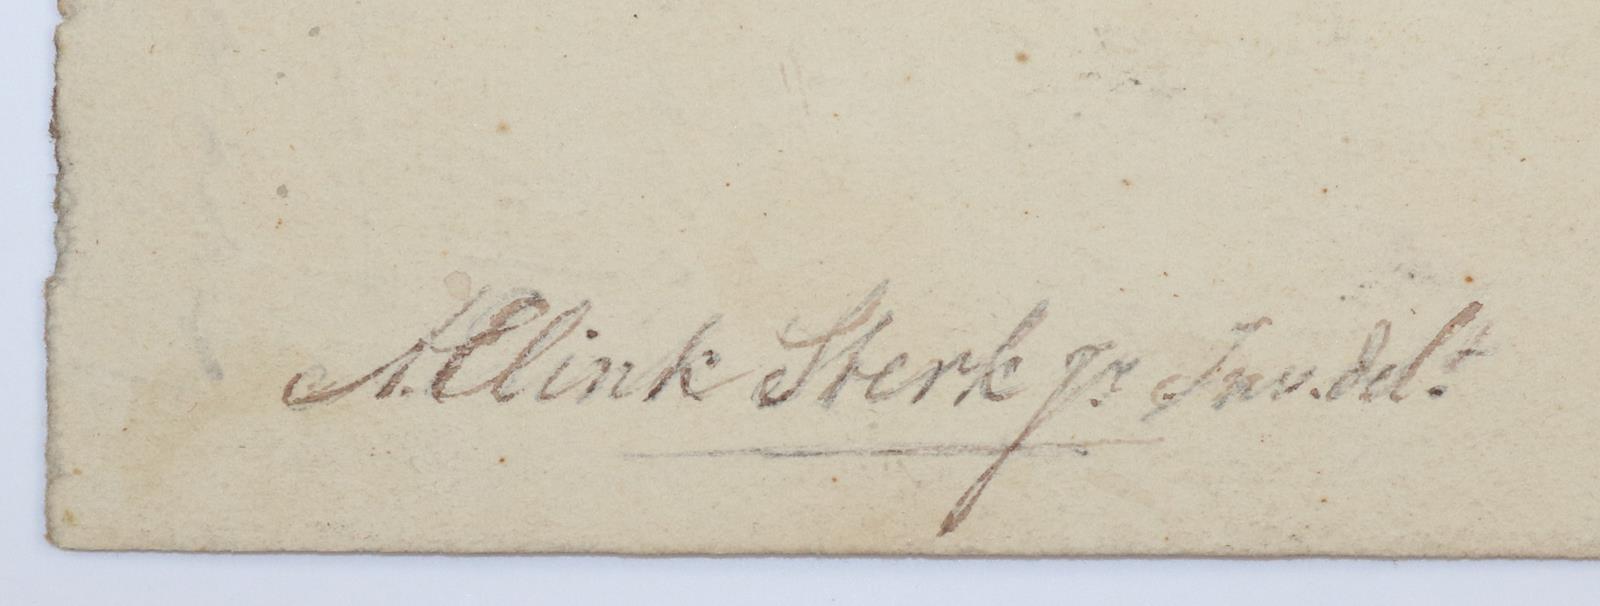 A. Elink Sterk Jr Inv. delt.